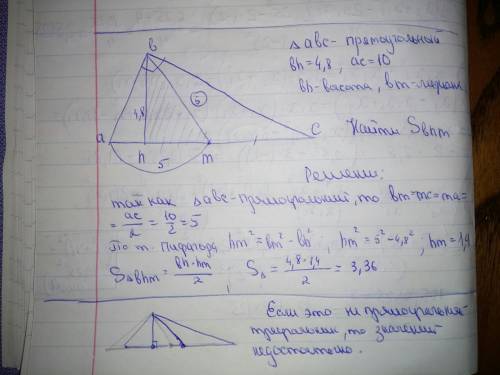 Δabc- прямоугольный
bh=4,8, ac=10
bh-высота, bm-медиана
Найти Sbhm
b
4,8
5
a
h
m
c
5
Решение:
так как Δabc-прямоугольный, то bm=mc=ma=
= ac/2 = 10/2 = 5
По т. Пифагора hm²=bm²-bh², hm²=5²-4,8², hm=1,4
SΔbhm= bh·hm/2, SΔ = 4,8·1,4/2 = 3,36
Если это не прямоугольный
треугольник, то значений
недостаточно.